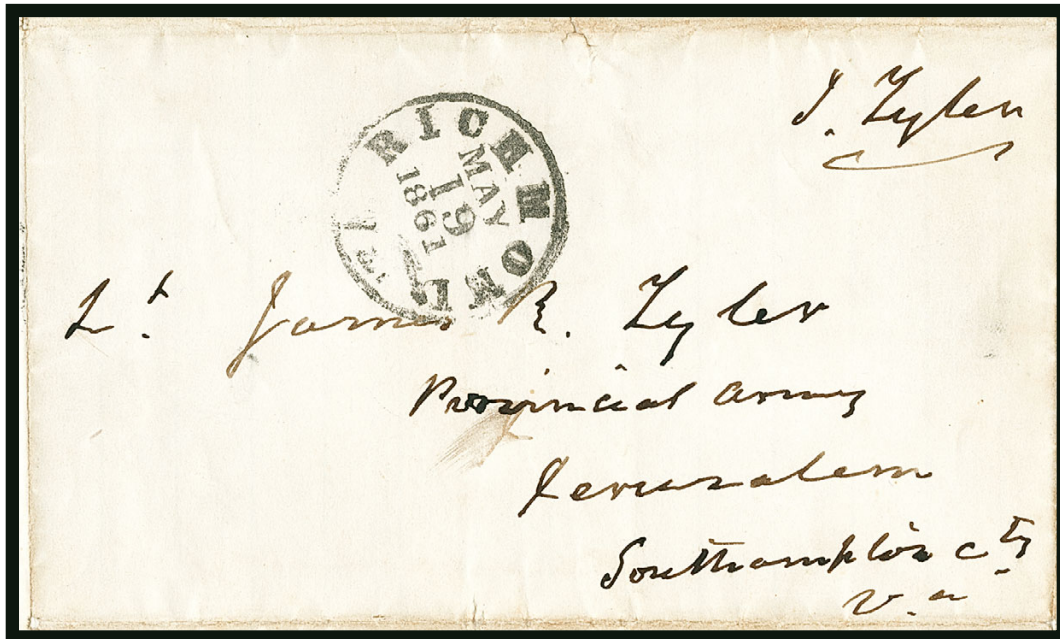 J. Tyler
RICHMOND
MAY
19
1861
Lt. James R. Tyler
Provincial Army
Jerusalem
Southampton Cty
Va